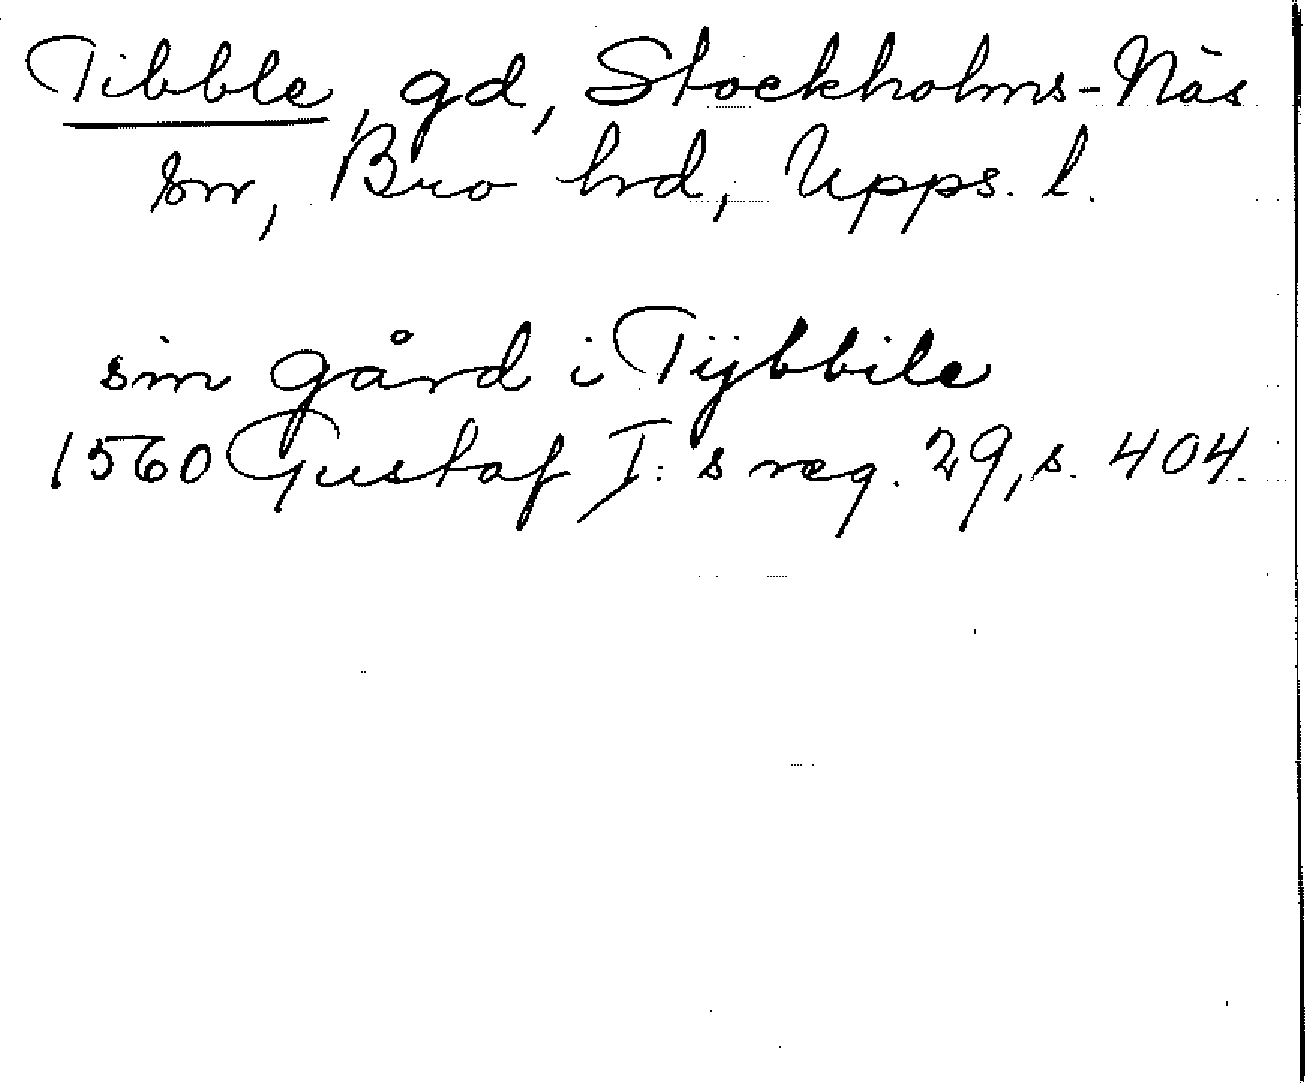 Tibble, gd, Stockholms-Näs
sn, Bro hd, Upps. l.
sin gård i Tijbbile
1560 Gustaf I:s reg. 29, s. 404.